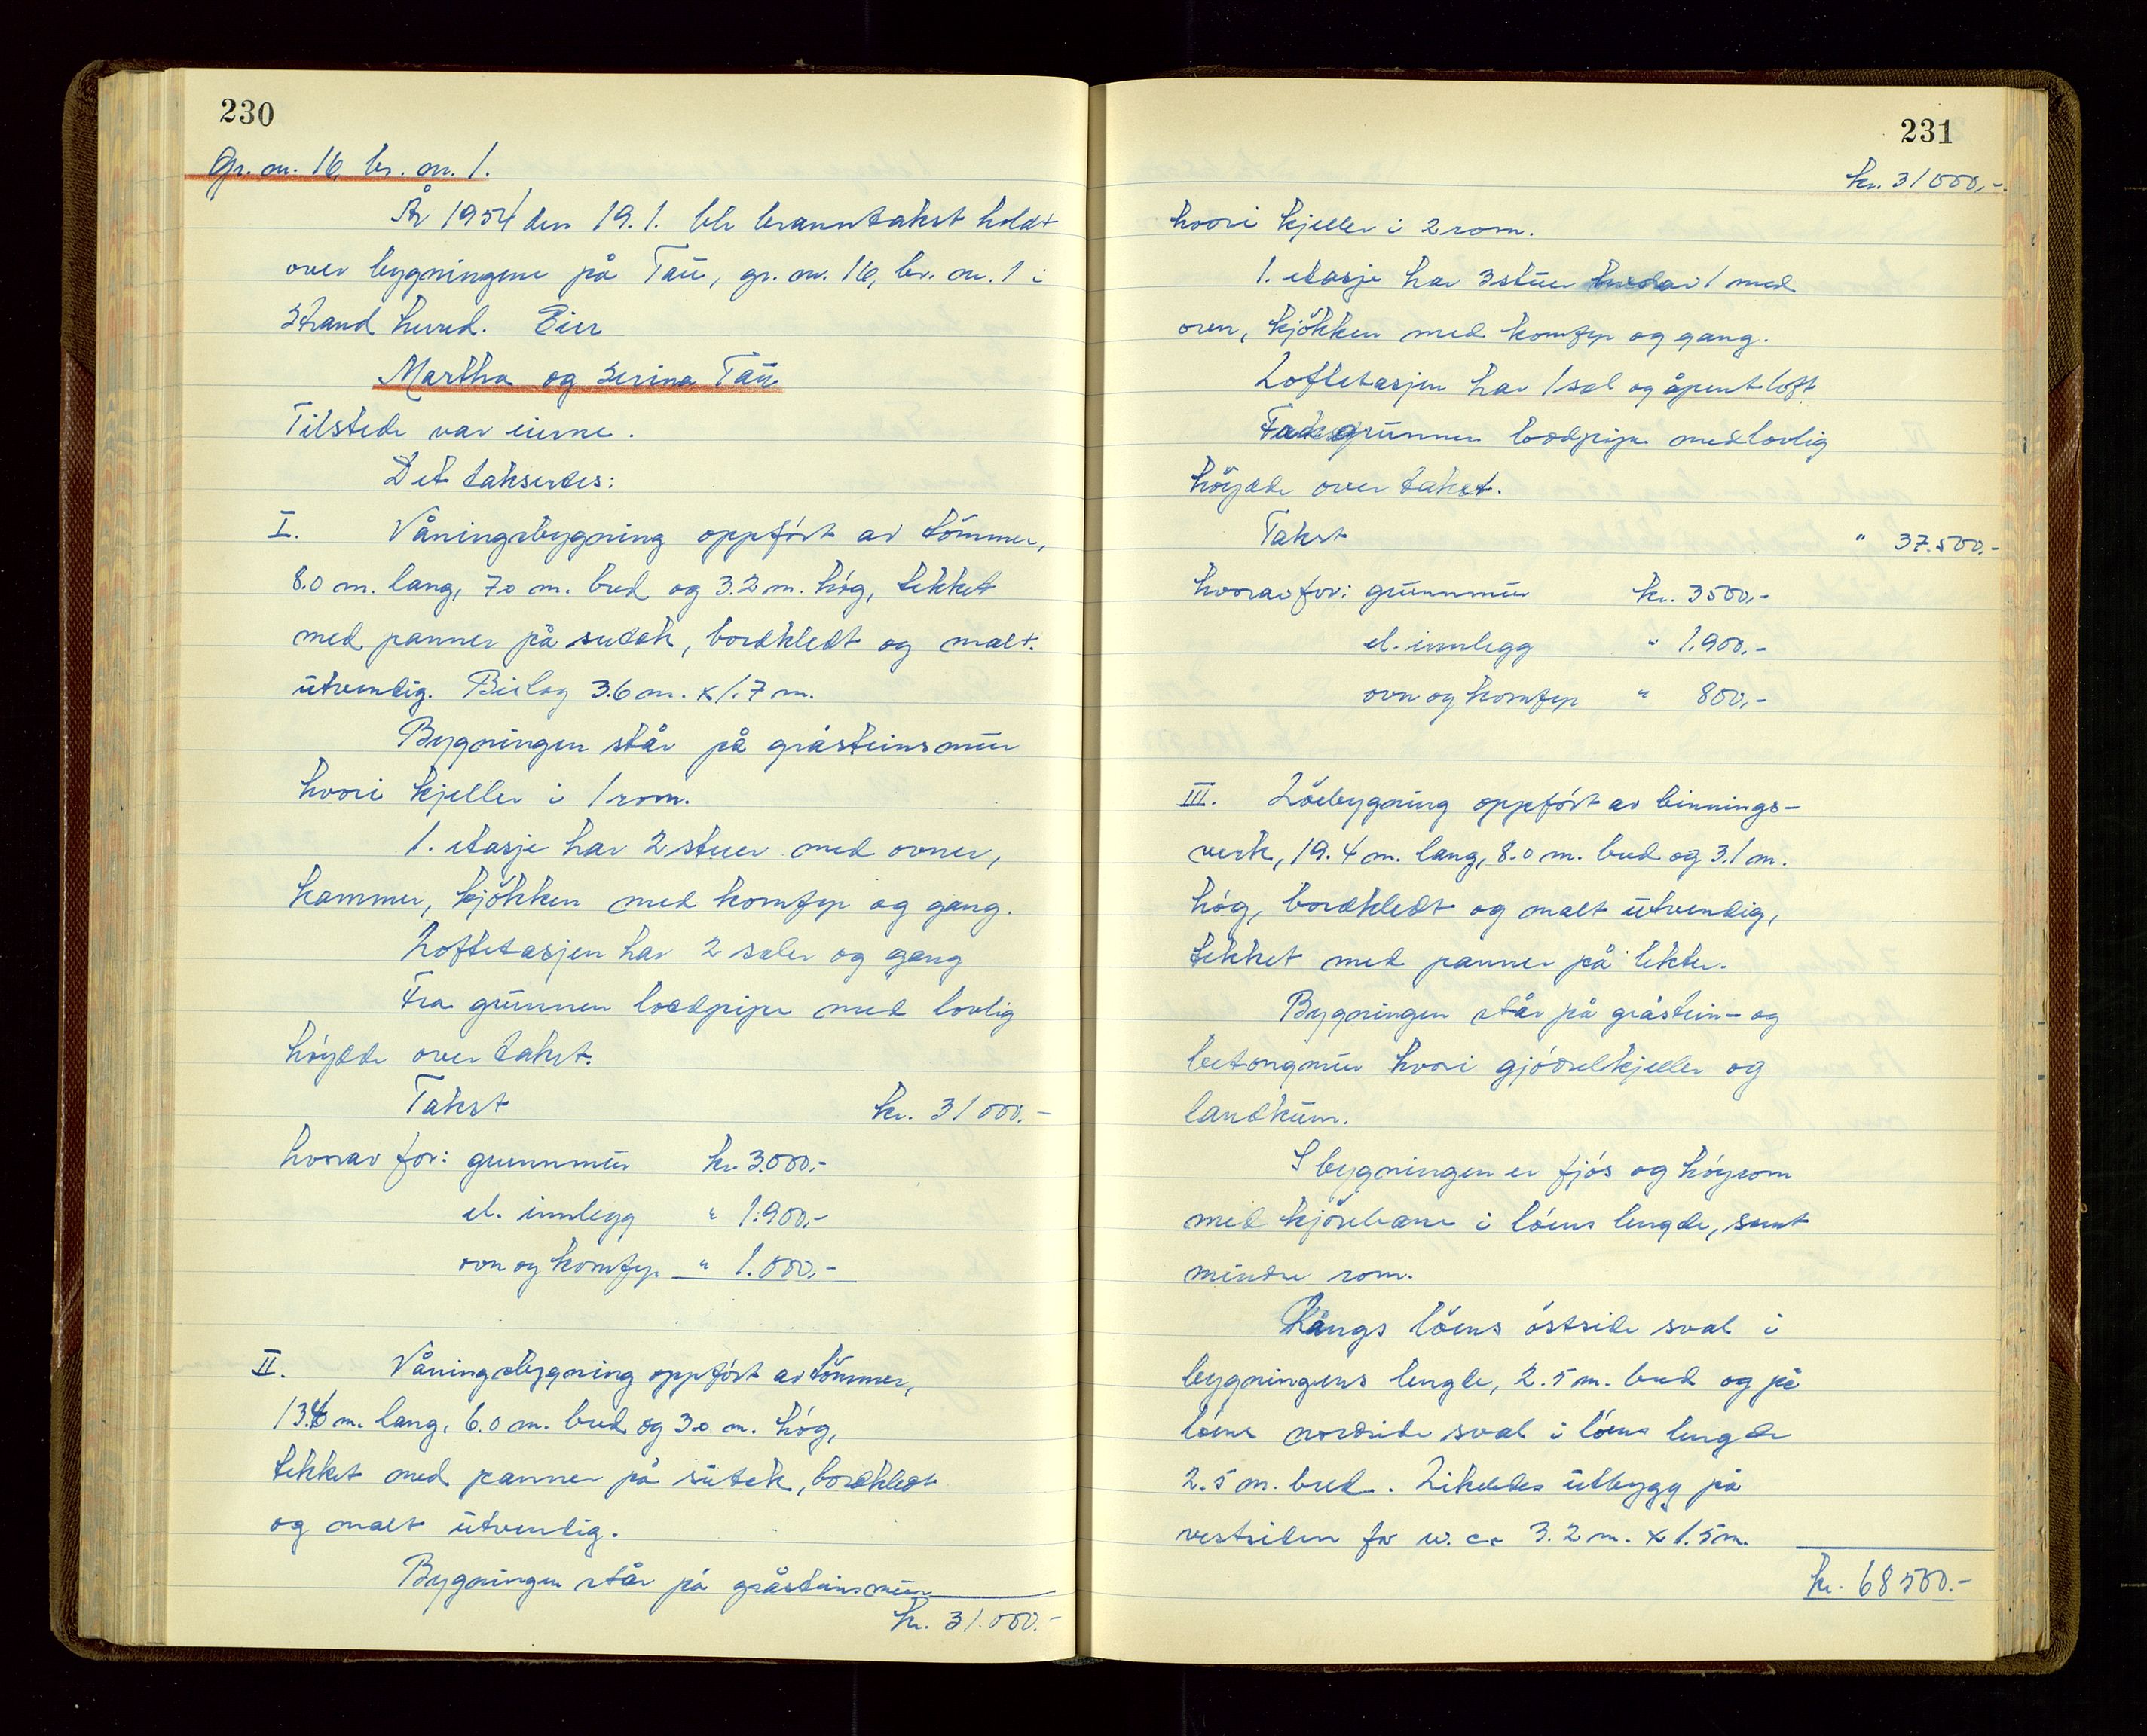 230
Gr. nr. 16, br. nr. 1.
År 1954 den 19.1. ble branntakst holdt
over bygningene på Tau, gr. nr. 16, br. nr. 1 i
Strand herred. Eier
Martha og Serina Tau
Tilstede var eierne.
Det takseredes:
I. Våningsbygning oppført av tömmer,
8.0 m. lang, 7.0 m. bred og 3.2 m. høg, tekket
med panner på sutak, bordkledt og malt
utvendig. Bislag 3.6 m. x 1.7 m.
Bygningen står på gråsteinsmur
hvori kjeller i 1 rom.
1. etasje har 2 stuer med ovner,
kammer, kjøkken med komfyr og gang.
Loftetasjen har 2 saler og gang
Fra grunnen loddpipe med lovlig
høgde over taket.
Takst kr. 31000.-
hvorav for: grunnmur kr. 3.000,-
el. innlegg " 1.900,-
ovn og komfyr " 1.000,-
II. Våningsbygning oppført av tömmer,
m. lang, 6.0 m. bred og 3.0 m. høg,
tekket med panner på sutak, bordkledt
og malt utvendig.
Bygningen står på gråsteinsmur
kr. 31.000.-
231
kr. 31000,-
hvori kjeller i 2 rom.
1. etasje har 3 stuer hvorav 1 med
ovn, kjøkken med komfyr og gang.
Loftetasjen har 1 sal og åpent loft
Fra grunnen loddpipe med lovlig
høgde over taket.
Takst " 37.500.-
hvorav for: grunnmur kr. 3500,-
el. innlegg " 1.900.-
ovn og komfyr " 800,-
III. Löebygning oppført av binnings-
verk, 19.4 m. lang, 8.0 m. bred og 3.1 m.
høg, bordkledt og malt utvendig,
tekket med panner på lekter.
Bygningen står på gråstein- og
betongmur hvori gjødselkjeller og
landkum.
I bygningen er fjøs og høyrom
med kjørebane i løens lengde, samt
mindre rom.
Langs løens østside sval i
bygningens lengde, 2.5 m. bred og på
løens nordside sval i løens lengde
2.5 m. bred. Likeledes utbygg på
vestsiden for w.c. 3.2 m. x 1.5 m.
kr. 68500.-